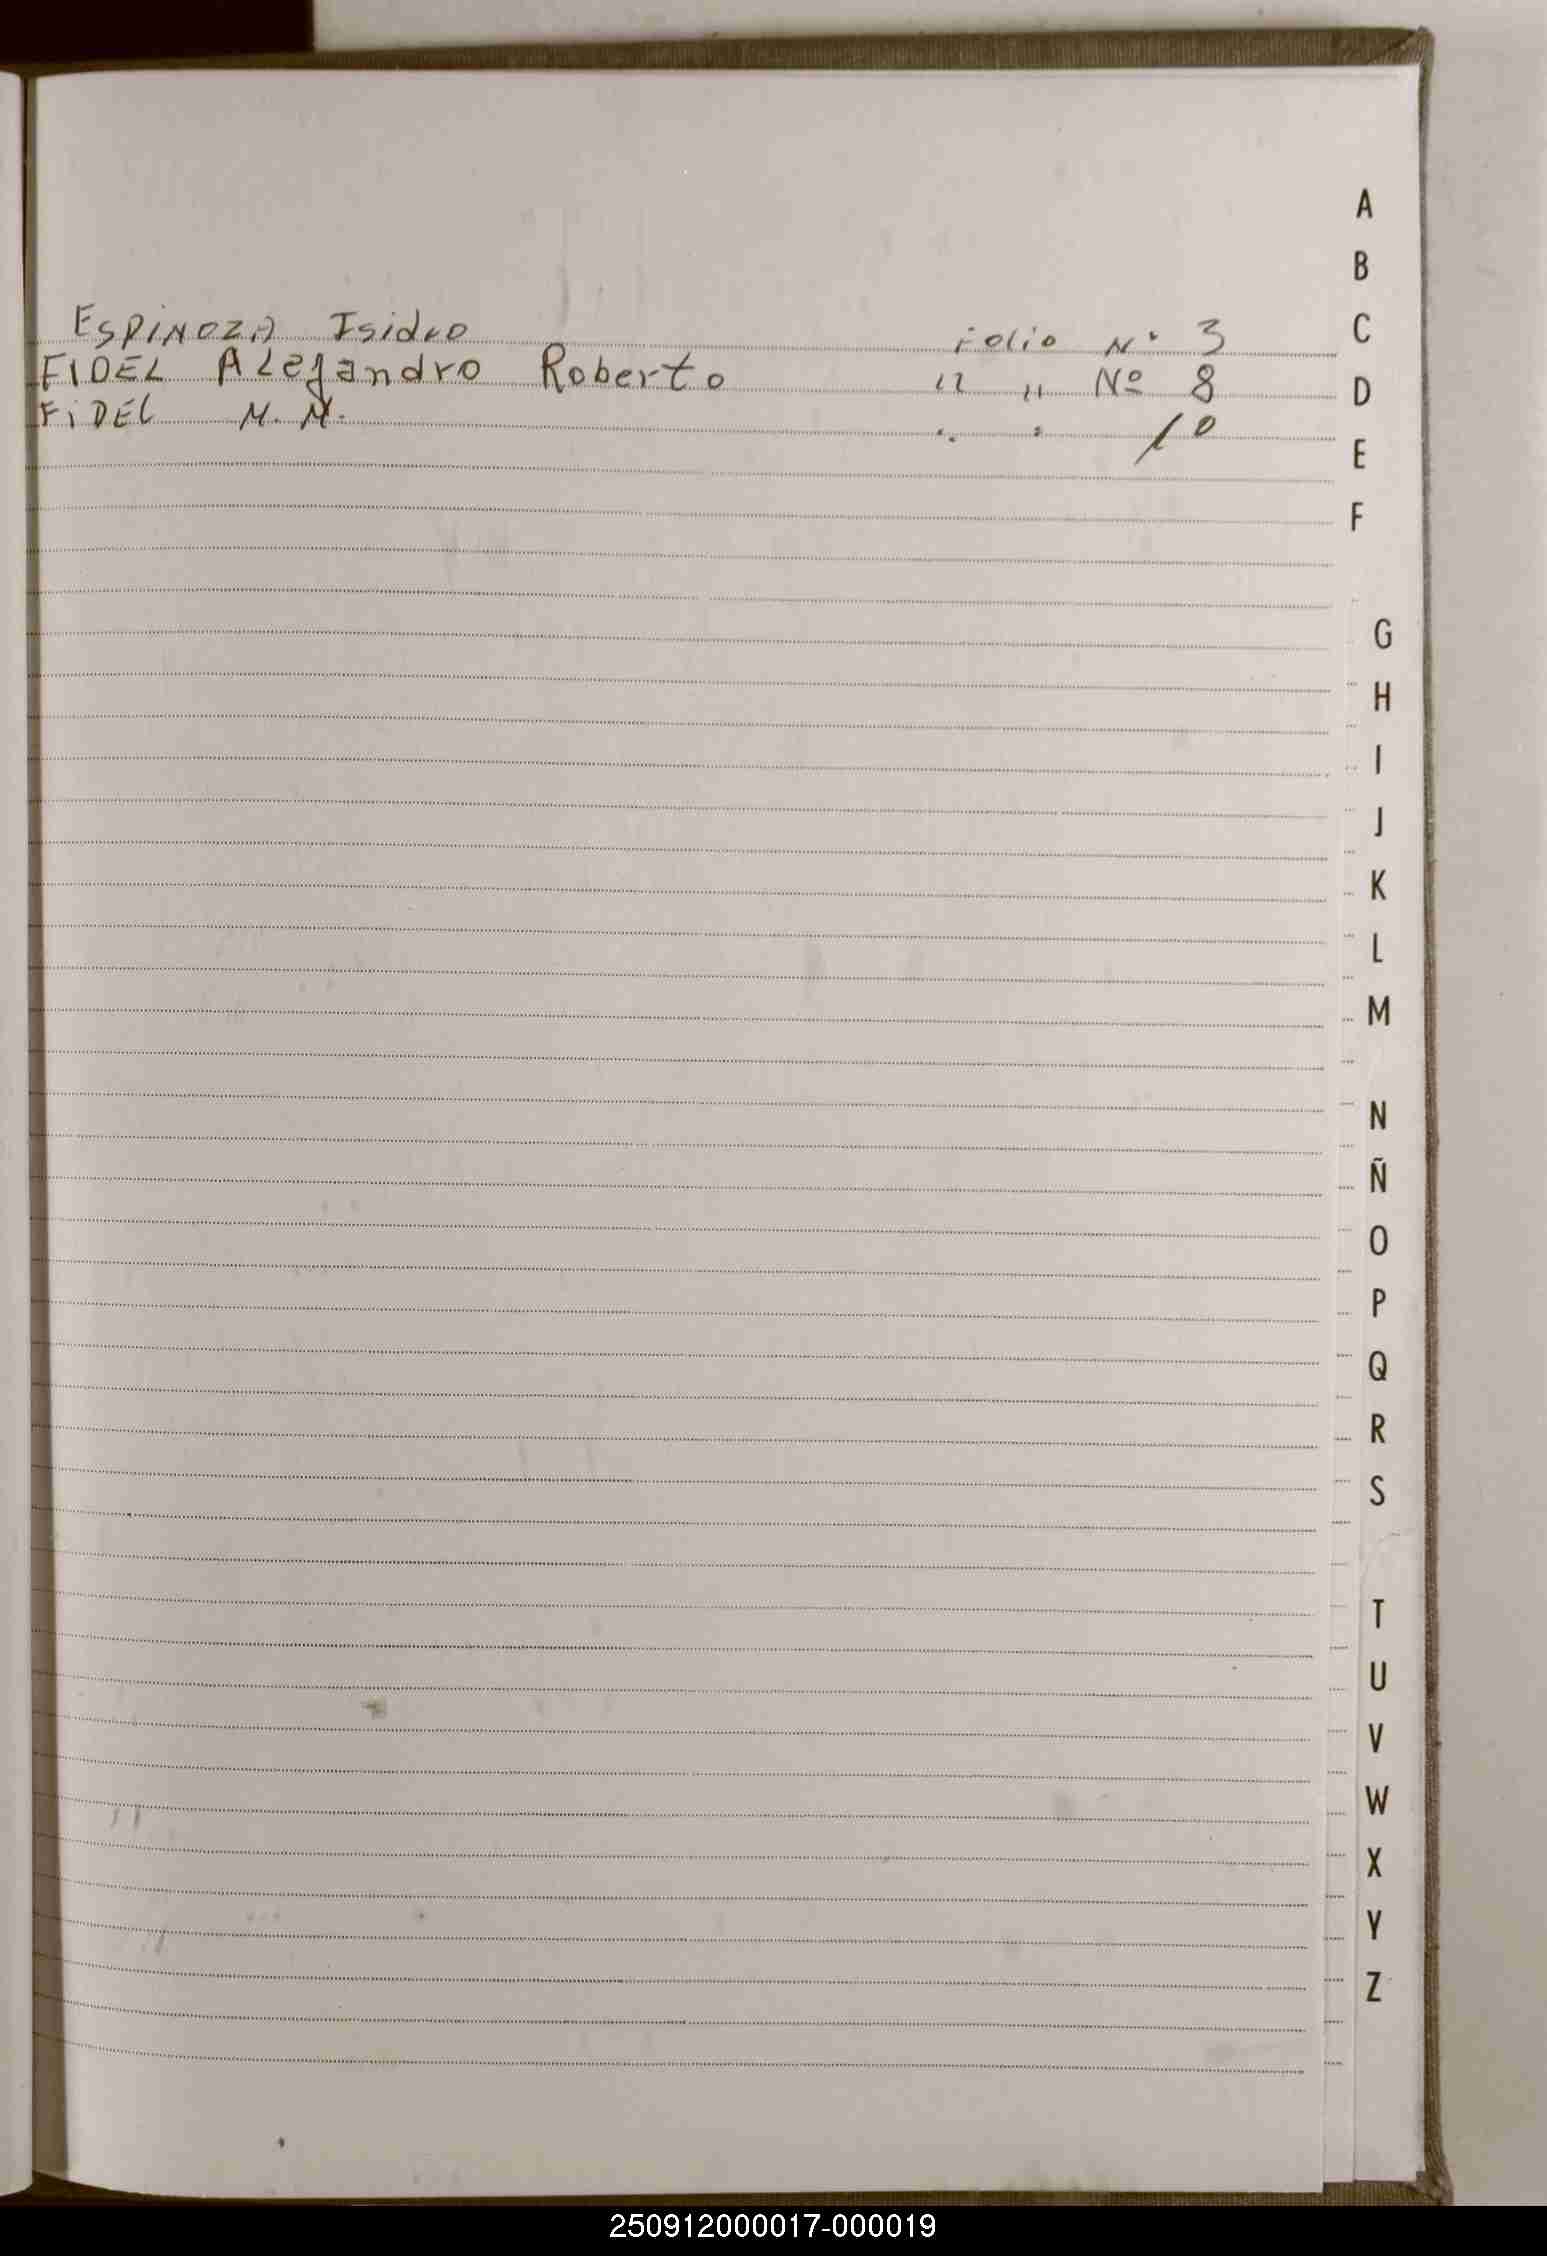 ESPINOZA Isidro Folio N° 3
FIDEL Alejandro Roberto " " Nº 8
FiDEL N. N. " " 10
A
B
C
D
E
F
G
H
I
J
K
L
M
N
Ñ
O
P
Q
R
S
T
U
V
W
X
Y
Z
250912000017-000019